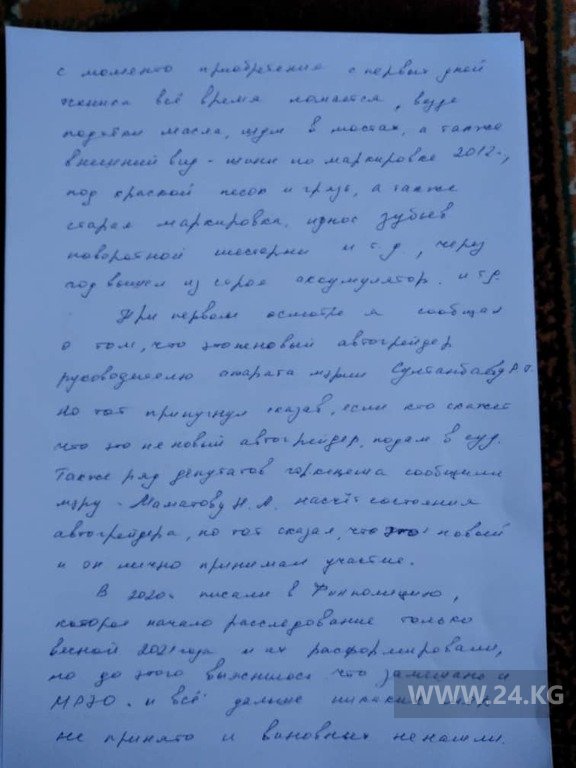 с момента приобретения с первых дней
техника всё время ломается, везде
подтёки масла, шум в мостах, а также
внешний вид - шины по маркировке 2012г,
под краской песок и грязь, а также
старая маркировка. износ зубьев
поворотной шестерни и т.д, через
год вышел из строя аккумулятор. и т.д.
При первом осмотре я сообщал
о том, что это неновый автогрейдер
руководителю аппарата мэрии Султанбаеву Р.Т.
Но тот припугнул сказав, если кто скажет
что это не новый автогрейдер, подам в суд.
Также ряд депутатов горкенеша сообщили
мэру - Маматову Н.А. насчёт состояния
автогрейдера, но тот сказал, что это новый
и он лично принимал участие.
В 2020г писали в Финполицию,
которая начало расследование только
весной 2021 года и их расформировали,
но до этого выяснилось что замешано и
МРЭО. и всё дальше никаких
не принято и виновных не нашли.
WWW.24.KG